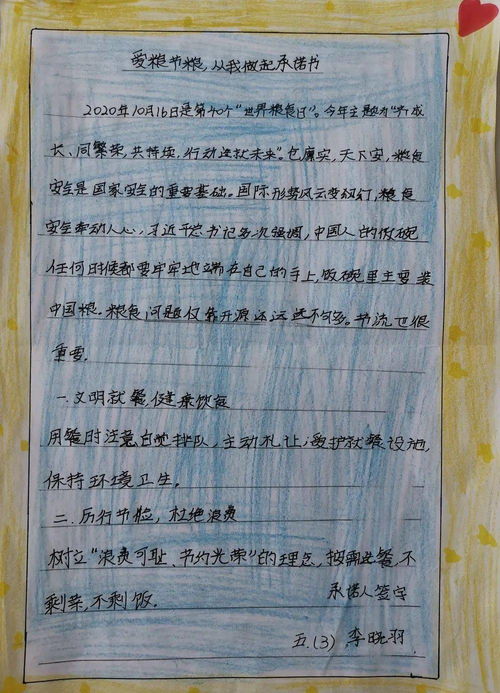 爱粮节粮,从我做起承诺书
2020年10月16日是第40个“世界粮食日”。今年主题为“齐成
长、同繁荣,共持续,行动造就未来”。仓廪实,天下安,粮食
安全是国家安全的重要基础。国际形势风云变幻,粮食
安全牵动人心,习近平总书记多次强调,中国人的饭碗
任何时候都要牢牢地端在自己的手上,饭碗里主要装
中国粮。粮食问题仅靠开源还远远不够。节流也很
重要。
一.文明就餐,健康饮食
用餐时注意自觉排队,主动礼让,爱护就餐设施,
保持环境卫生。
二.厉行节俭,杜绝浪费
树立“浪费可耻、节约光荣”的理念,按需选餐,不
剩菜,不剩饭.
承诺人签字
五.(3) 李晓羽